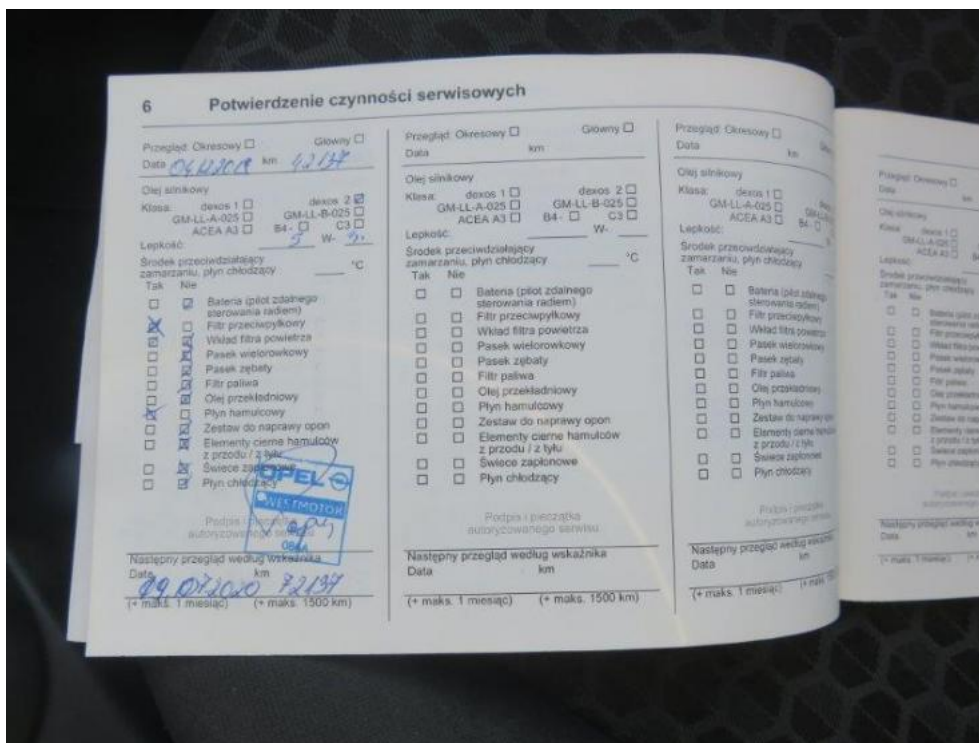 6 Potwierdzenie czynności serwisowych
Przegląd: Okresowy ☐ Główny ☐
Data km 42137
Olej silnikowy
Klasa: dexos 1 ☐ dexos 2 ☑
GM-LL-A-025 ☐ GM-LL-B-025 ☐
ACEA A3 ☐ B4- ☐ C3 ☐
Lepkość: 5 W-
Środek przeciwdziałający
zamarzaniu, płyn chłodzący °C
Tak Nie
☐ ☑ Bateria (pilot zdalnego
sterowania radiem)
☒ ☐ Filtr przeciwpyłkowy
☑ ☑ Wkład filtra powietrza
☐ ☑ Pasek wielorowkowy
☐ ☑ Pasek zębaty
☐ ☑ Filtr paliwa
☐ ☑ Olej przekładniowy
☒ ☐ Płyn hamulcowy
☐ ☑ Zestaw do naprawy opon
☐ ☑ Elementy cierne hamulców
z przodu / z tyłu
☐ ☑ Świece zapłonowe
☐ ☑ Płyn chłodzący
OPEL
WESTMOTOR
Podpis i pieczątka
autoryzowanego serwisu
Następny przegląd według wskaźnika
Data km
07 2020 72137
(+ maks. 1 miesiąc) (+ maks. 1500 km)
Przegląd: Okresowy ☐ Główny ☐
Data km
Olej silnikowy
Klasa: dexos 1 ☐ dexos 2 ☐
GM-LL-A-025 ☐ GM-LL-B-025 ☐
ACEA A3 ☐ B4- ☐ C3 ☐
Lepkość: W-
Środek przeciwdziałający
zamarzaniu, płyn chłodzący °C
Tak Nie
☐ ☐ Bateria (pilot zdalnego
sterowania radiem)
☐ ☐ Filtr przeciwpyłkowy
☐ ☐ Wkład filtra powietrza
☐ ☐ Pasek wielorowkowy
☐ ☐ Pasek zębaty
☐ ☐ Filtr paliwa
☐ ☐ Olej przekładniowy
☐ ☐ Płyn hamulcowy
☐ ☐ Zestaw do naprawy opon
☐ ☐ Elementy cierne hamulców
z przodu / z tyłu
☐ ☐ Świece zapłonowe
☐ ☐ Płyn chłodzący
Podpis i pieczątka
autoryzowanego serwisu
Następny przegląd według wskaźnika
Data km
(+ maks. 1 miesiąc) (+ maks. 1500 km)
Przegląd: Okresowy ☐
Data km
Olej silnikowy
Klasa: dexos 1 ☐
GM-LL-A-025 ☐
ACEA A3 ☐
Lepkość:
Środek przeciwdziałający
zamarzaniu, płyn chłodzący
Tak Nie
☐ ☐ Bateria (pilot zdalnego
sterowania radiem)
☐ ☐ Filtr przeciwpyłkowy
☐ ☐ Wkład filtra powietrza
☐ ☐ Pasek wielorowkowy
☐ ☐ Pasek zębaty
☐ ☐ Filtr paliwa
☐ ☐ Olej przekładniowy
☐ ☐ Płyn hamulcowy
☐ ☐ Zestaw do naprawy opon
☐ ☐ Elementy cierne
z przodu / z tyłu
☐ ☐ Świece zapłonowe
☐ ☐ Płyn chłodzący
Podpis i pieczątka
autoryzowanego serwisu
Następny przegląd według
Data km
(+ maks. 1 miesiąc)